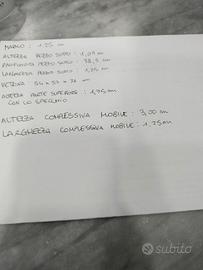 MARMO : 1,25 m
ALTEZZA PEZZO SOTTO : 1,09 m
PROFONDITÀ PEZZO SOTTO : 38,5 cm
LARGHEZZA PEZZO SOTTO : 1,25 m
VETRINA : 54 x 53 x 36 cm
ALTEZZA PARTE SUPERIORE : 1,95 m
CON LO SPECCHIO
ALTEZZA COMPLESSIVA MOBILE : 3,00 m
LARGHEZZA COMPLESSIVA MOBILE : 1,25 m
subito